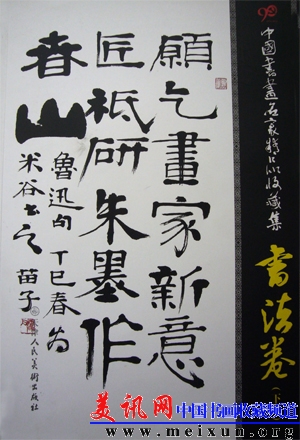 願乞畫家新意
匠祗研朱墨作
春山
魯迅句 丁巳春为
米谷书之 苗子
人民美術出版社
中國書畫名家精品收藏集
書法卷
(下
美讯网
中国书画收藏频道
www.meixun.org